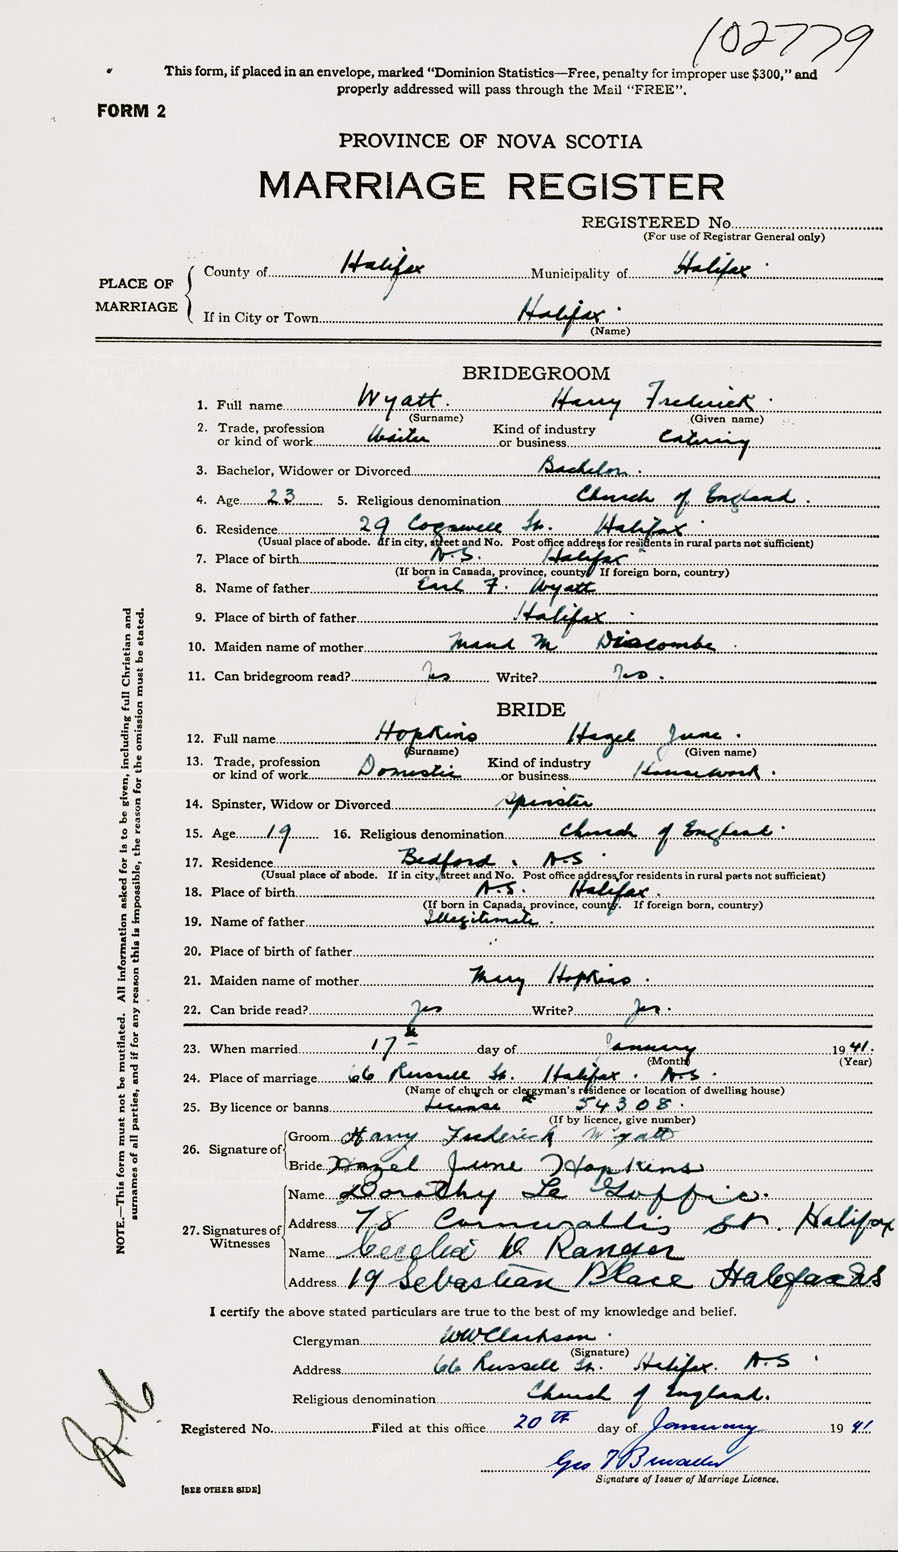 102779
This form, if placed in an envelope, marked "Dominion Statistics—Free, penalty for improper use $300," and
properly addressed will pass through the Mail "FREE".
FORM 2
PROVINCE OF NOVA SCOTIA
MARRIAGE REGISTER
REGISTERED No.
(For use of Registrar General only)
PLACE OF MARRIAGE
County of Halifax Municipality of Halifax
If in City or Town Halifax
(Name)
BRIDEGROOM
1. Full name Wyatt Harry Frederick
(Surname) (Given name)
2. Trade, profession or kind of work Waiter Kind of industry or business Catering
3. Bachelor, Widower or Divorced Bachelor
4. Age 23 5. Religious denomination Church of England
6. Residence 29 Cogswell St. Halifax
(Usual place of abode. If in city, street and No. Post office address for residents in rural parts not sufficient)
7. Place of birth N.S. Halifax
(If born in Canada, province, county. If foreign born, country)
8. Name of father Earl F. Wyatt
9. Place of birth of father Halifax
10. Maiden name of mother Maud M Discombe
11. Can bridegroom read? Yes Write? Yes.
BRIDE
12. Full name Hopkins Hazel June
(Surname) (Given name)
13. Trade, profession or kind of work Domestic Kind of industry or business Housework
14. Spinster, Widow or Divorced Spinster
15. Age 19 16. Religious denomination Church of England
17. Residence Bedford, N.S
(Usual place of abode. If in city, street and No. Post office address for residents in rural parts not sufficient)
18. Place of birth N.S. Halifax.
(If born in Canada, province, county. If foreign born, country)
19. Name of father Illegitimate.
20. Place of birth of father
21. Maiden name of mother Mary Hopkins.
22. Can bride read? Yes Write? Yes.
23. When married 17th day of January 1941.
(Month) (Year)
24. Place of marriage 66 Russell St. Halifax. N.S.
(Name of church or clergyman's residence or location of dwelling house)
25. By licence or banns License # 54308.
(If by licence, give number)
26. Signature of
Groom Harry Frederick Wyatt
Bride Hazel June Hopkins
27. Signatures of Witnesses
Name Dorothy Le Goffic.
Address 78 Cornwallis St. Halifax
Name Cecelia D. Ranger
Address 19 Sebastian Place Halifax NS
I certify the above stated particulars are true to the best of my knowledge and belief.
Clergyman WW Clarkson.
(Signature)
Address 66 Russell St. Halifax. N.S
Religious denomination Church of England.
Registered No. Filed at this office 20th day of January 1941
Geo T
Signature of Issuer of Marriage Licence.
[SEE OTHER SIDE]
NOTE.—This form must not be mutilated. All information asked for is to be given, including full Christian and
surnames of all parties, and if for any reason this is impossible, the reason for the omission must be stated.